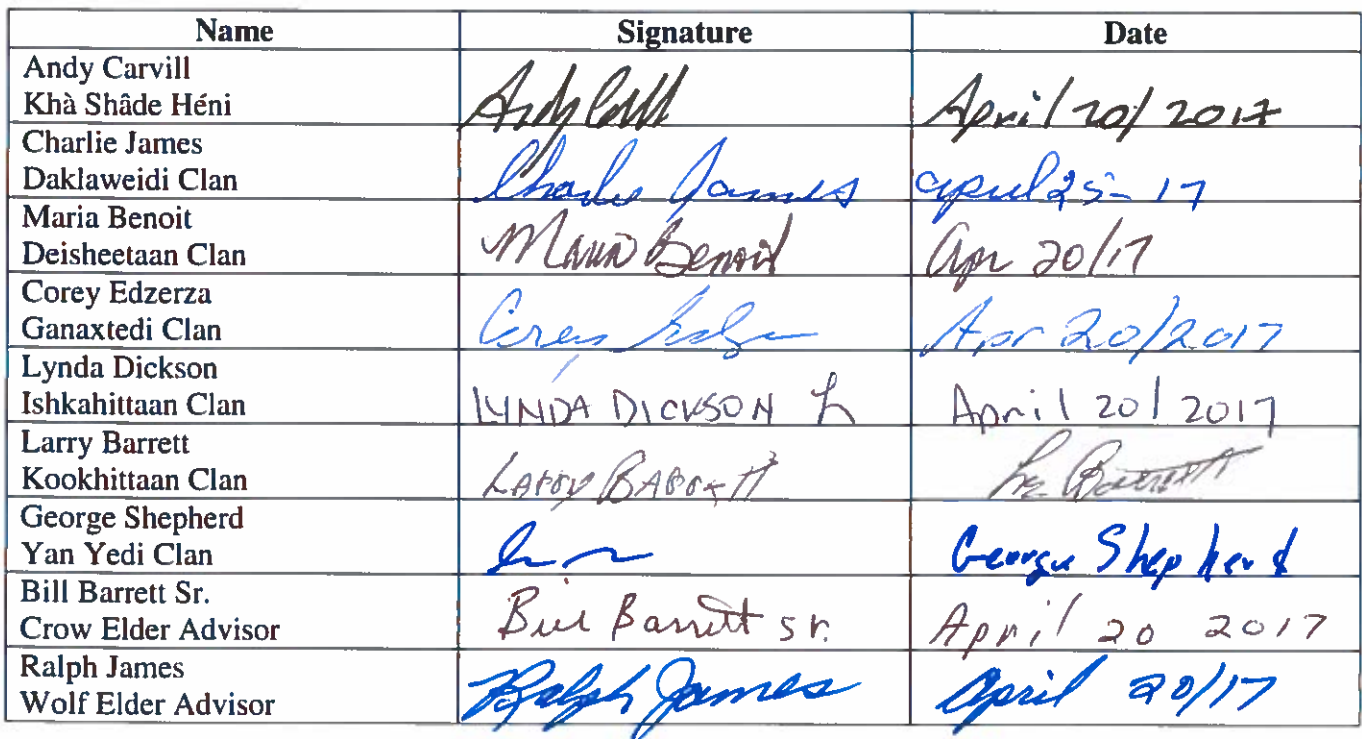 Name Signature Date
Andy Carvill
Khà Shâde Héni
Andy April 20/2017
Charlie James
Daklaweidi Clan
Charlie James april 25-17
Maria Benoit
Deisheetaan Clan
Maria Benoit Apr 20/17
Corey Edzerza
Ganaxtedi Clan
Corey Apr 20/2017
Lynda Dickson
Ishkahittaan Clan
LYNDA DICKSON April 20/2017
Larry Barrett
Kookhittaan Clan
LARRY BARRETT Barrett
George Shepherd
Yan Yedi Clan
George Shepherd
Bill Barrett Sr.
Crow Elder Advisor
Bill Barrett sr. April 20 2017
Ralph James
Wolf Elder Advisor
Ralph James April 20/17